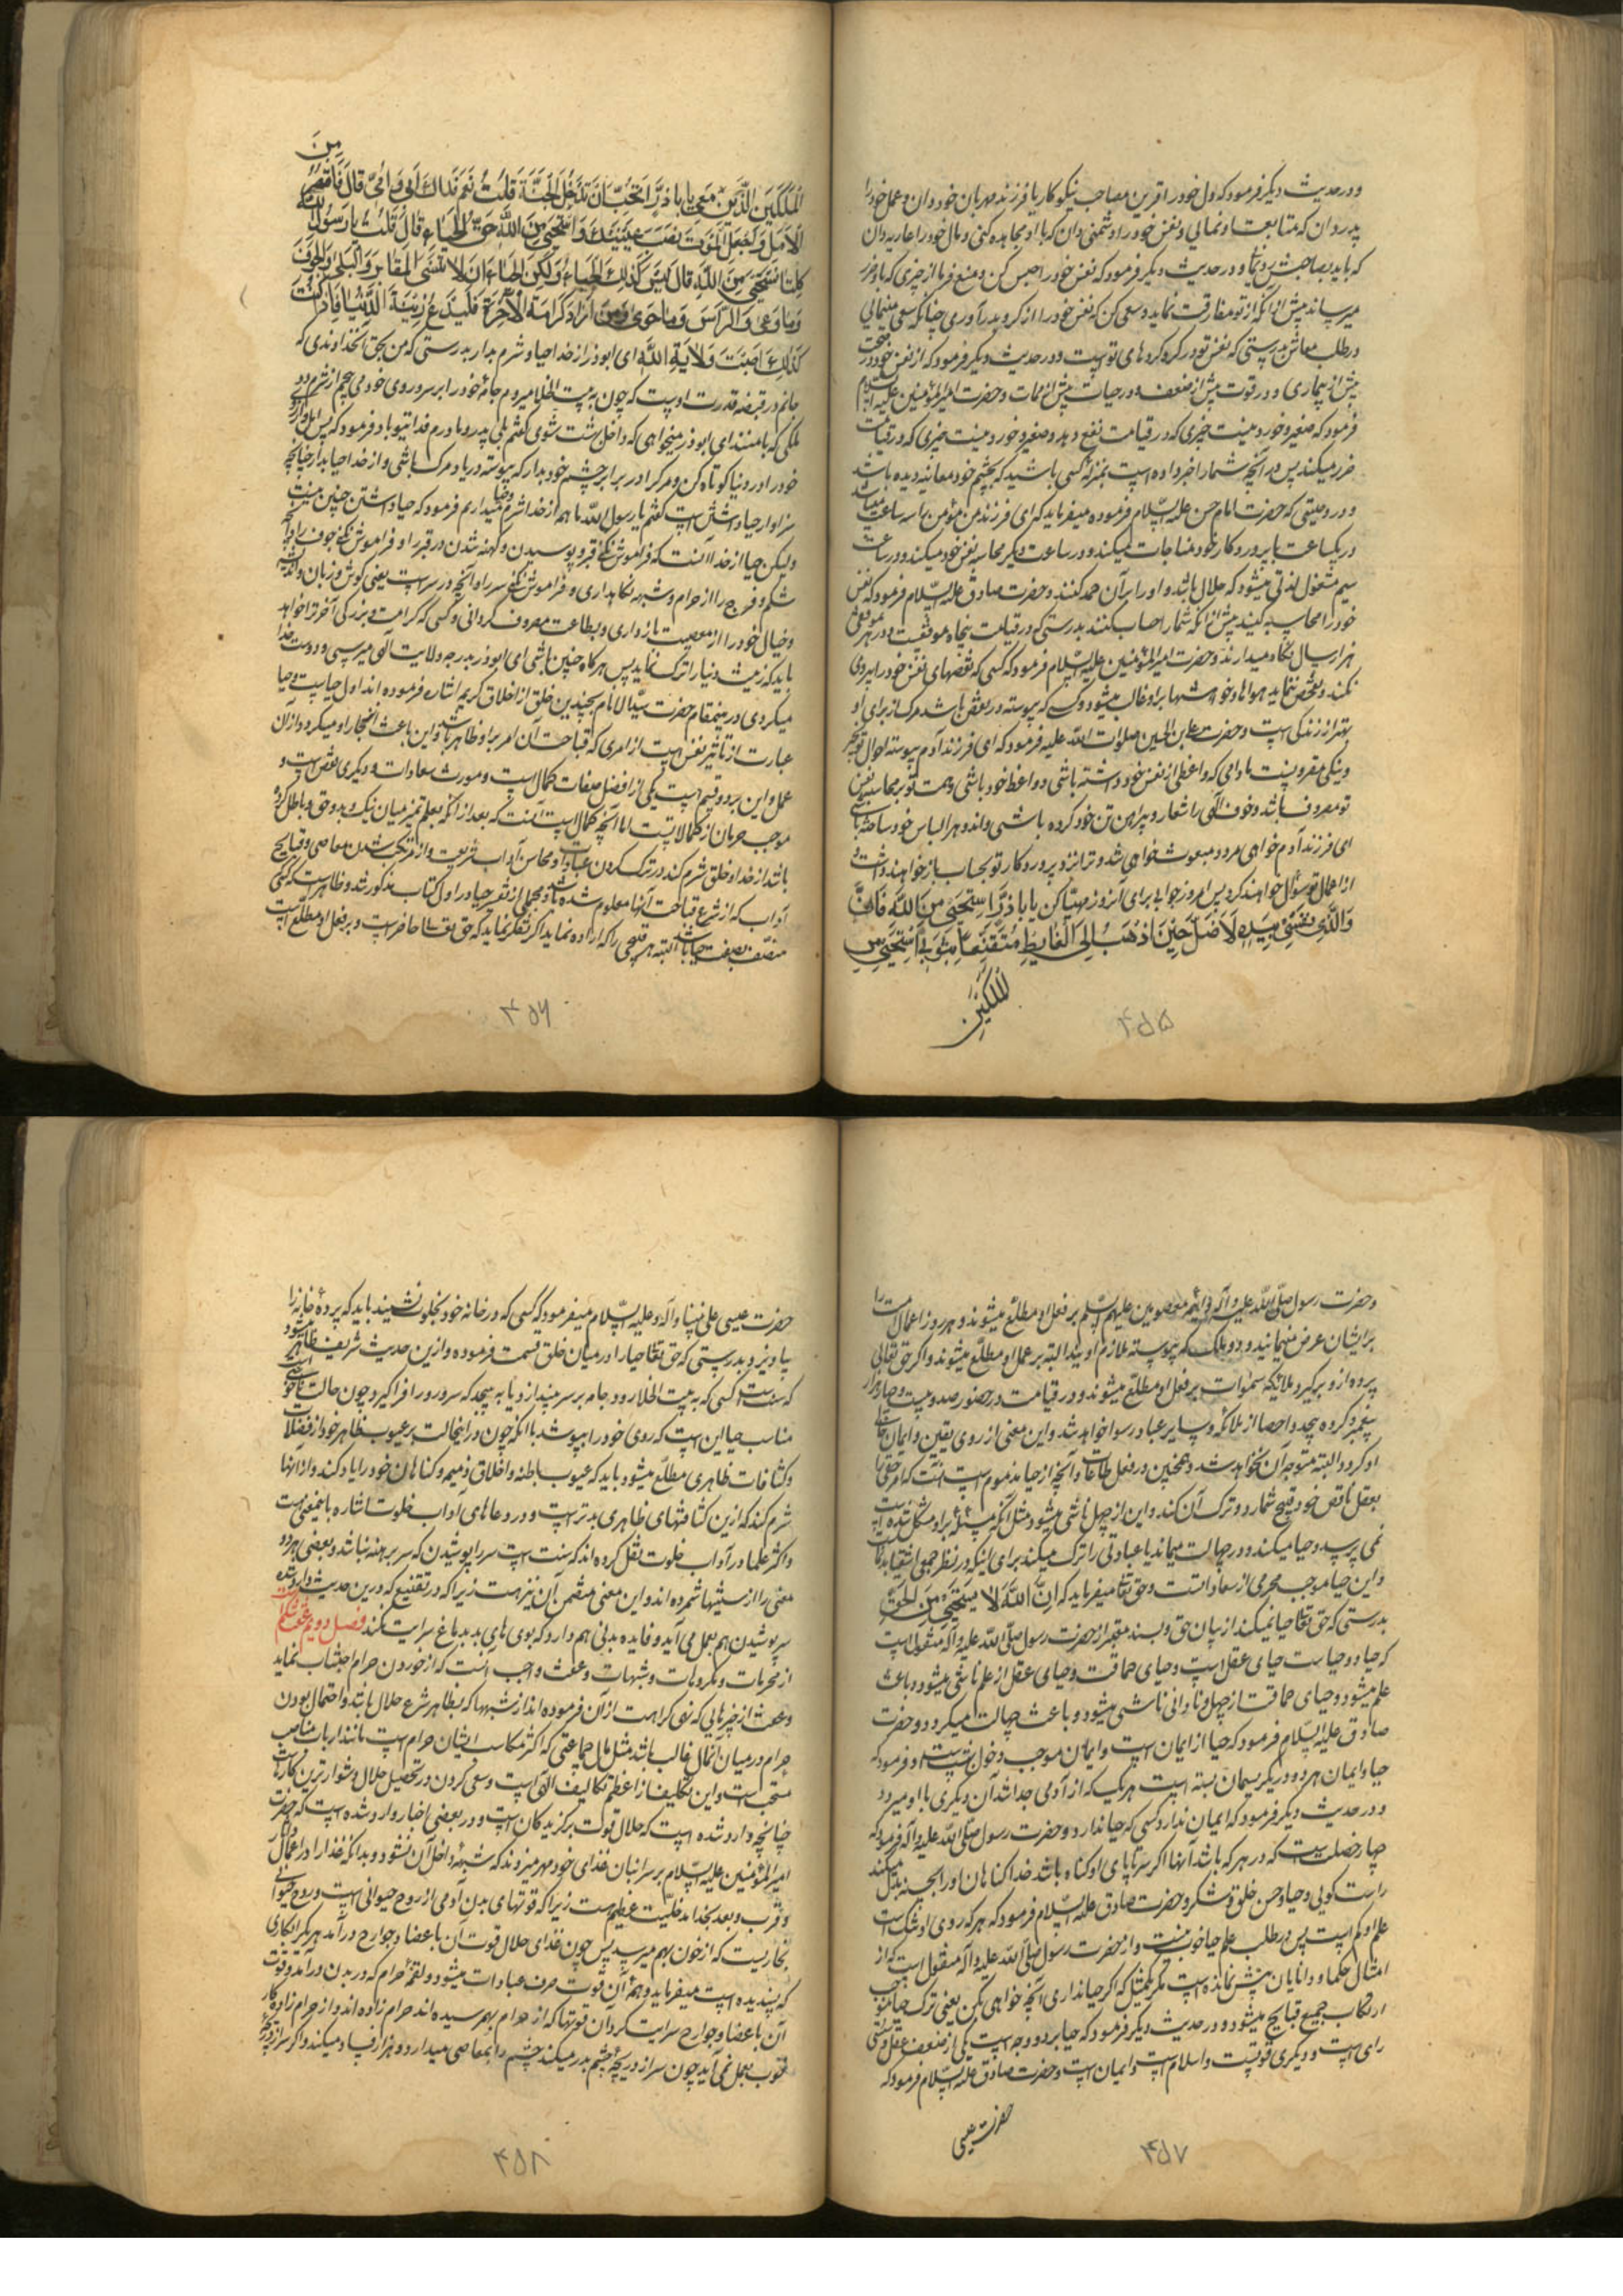 و در حدیث دیگر فرمود که دل خود را قرین مصاحب نیکوکار یا فرزند مهربان خود دان و عمل خود را
پدر دان که متابعت او نمائی و نفس خود را دشمنی دان که با او مجاهده کنی و مال خود را عاریه دان
که باید بصاحبش رد نمائی و در حدیث دیگر فرمود که نفس خود را حبس کن و منع فرما از چیزی که باو ضرر
میرساند پیش از آنکه از تو مفارقت نماید و سعی کن که نفس خود را از گرو بدر آوری چنانکه سعی مینمائی
در طلب معاش بدرستی که نفس تو در گرو کردهای تو است و در حدیث دیگر فرمود که از نفس خود در صحت
پیش از بیماری و در قوت پیش از ضعف و در حیات پیش از ممات و حضرت امیر المؤمنین علیه السلام
فرمود که صغیر و خورد نیست چیزی که در قیامت نفع دهد و صغیر و خورد نیست چیزی که در قیامت
ضرر میکند پس در آنچه شما را خبر داده است بمنزله کسی باشید که بچشم خود معاینه دیده باشد
و در وصیتی که حضرت امام حسن علیه السلام فرموده میفرماید که ای فرزند من مؤمن را سه ساعت میباشد
در یکساعت با پروردگار خود مناجات میکند و در ساعت دیگر محاسبه نفس خود میکند و در ساعت
سیم مشغول لذتی میشود که حلال باشد و او را بر آن حمد کنند و حضرت صادق علیه السلام فرمود که نفس
خود را محاسبه کنید پیش از آنکه شما را حساب کنند بدرستی که در قیامت پنجاه موقفست و در هر موقفی
هزار سال نگاه میدارند و حضرت امیر المؤمنین علیه السلام فرمود که کسی که نقصهای نفس خود را پیروی
نکند و تفحص ننماید هواها و خواهشها بر او غالب میشود و کسی که پیوسته در نقص باشد مرگ از برای او
بهتر از زندگی است و حضرت علی بن الحسین صلوات الله علیه فرمود که ای فرزند آدم پیوسته احوال تو بخیر
و نیکی مقرونست مادامی که واعظی از نفس خود داشته باشی و واعظ خود باشی و همت تو بر محاسبه نفس
تو مصروف باشد و خوف الهی را شعار و پیراهن تن خود کرده باشی و اندوه را لباس خود ساخته باشی
ای فرزند آدم خواهی مرد و مبعوث خواهی شد و ترا نزد پروردگار تو بحساب باز خواهند داشت و
از اعمال تو سؤال خواهند کرد پس امروز جوابی برای آنروز مهیّا کن یا باذر استحیی من الله فانی
والذی نفسی بیده لاضل حین اذهب الی الغایط متقنعا بثوبی استحیی من
الملکین
۴۵۵
من
الملکین الذین معی یا باذر اتحب ان تدخل الجنة قلت نعم فداك ابی و امی قال فاقصر
الامل واجعل الموت نصب عینیك و استحیی من الله حق الحیاء قال قلت یا رسول الله
کلنا نستحیی من الله قال لیس کذلك الحیاء ولکن الحیاء ان لا تنسی المقابر والبلی والجوف
وما وعی والراس وما حوی ومن اراد کرامة الاخرة فلیدع زینة الدنیا فاذا کنت
کذلك اصبت ولایة الله ای ابوذر از خدا حیا و شرم بدار بدرستی که من بحق آنخداوندی که
جانم در قبضه قدرت اوست که چون به بیت الخلا میروم جامهٔ خود را بر سر و روی خود می‌پیچم از شرم دو
ملکی که با منند ای ابوذر میخواهی که داخل بهشت شوی گفتم بلی پدر و مادرم فدای تو باد فرمود که پس امل و آرزوی
خود را در دنیا کوتاه کن و مرگ را در برابر چشم خود بدار که پیوسته در یاد مرگ باشی و از خدا حیا بدار چنانچه
سزاوار حیا داشتن است گفتم یا رسول الله ما هم از خدا شرم و حیا میداریم فرمود که حیا داشتن چنین نیست
ولیکن حیا از خدا آنست که فراموش نکنی قبر و پوسیدن و کهنه شدن در قبر را و فراموش نکنی جوف را و آنچه
شکم و فرج را از حرام و شبهه نگاهداری و فراموش نکنی سر را و آنچه در سر است یعنی گوش و زبان و اندیشه
و خیال خود را از معصیت بازداری و بطاعت مصروف گردانی و کسی که کرامت و بزرگی آخرت را خواهد
باید که زینت دنیا را ترک نماید پس هرگاه چنین باشی ای ابوذر بدرجه ولایت الهی میرسی و دوست خدا
میگردی در ینمقام حضرت سید الانام بچندین خلق از اخلاق کریم اشاره فرموده اند اول حیاست و حیا
عبارت از تأثیر نفس است از امری که قباحت آن امر بر او ظاهر باشد و این باعث انزجار او میگردد از آن
عمل و این بر دو قسم است یکی از افضل صفات کمال است و مورث سعادات و دیگری نقص است و
موجب حرمان از کمالاتست اما آنچه کمال است آنست که بعد از آنکه بعلم تمیز میان نیک و بد و حق و باطل کرده
باشد از خدا و خلق شرم کند در ترک کردن عبادات و محاسن آداب شریعت و از مرتکب شدن معاصی و قبایح
آداب که از شرع قباحت آنها معلوم شده باشد و مجملی از تفسیر حیا در اول کتاب مذکور شد و ظاهر است که کسی
متصف بصفت حیا باشد البته هر قبیحی را که اراده نماید اگر تفکر نماید که حق تعالی حاضر است و بر فعل او مطلع است
۴۵۶
و حضرت رسول صلی الله علیه و آله و ائمه معصومین علیهم السلام بر فعل او مطلع میشوند و هر روز اعمال امت را
بر ایشان عرض مینمایند و دو ملک که پیوسته ملازم او یند البته بر عمل او مطلع میشوند و اگر حق تعالی
پرده از او برگیرد ملائکه سموات بر فعل او مطلع میشوند و در قیامت در حضور صد و بیست و چهار هزار
پیغمبر و گروه بیحد و احصا از ملائکه و سایر عباد رسوا خواهد شد و این معنی از روی یقین و ایمان
او گردد البته متوجه آن نخواهد شد و همچنین در فعل طاعات و آنچه از حیا مذموم است آنست که امر حقی را
بعقل ناقص خود قبیح شمارد و ترک آن کند و این از جهل ناشی میشود مثل آنکه مسئلهٔ بر او مشکل شده است
نمی پرسد و حیا میکند و در جهالت میماند یا عبادتی را ترک میکند برای اینکه در نظر جمعی اشقیا بد است
و این حیا موجب محرومی از سعادات است و حق تعالی میفرماید که ان الله لا یستحیی من الحق
بدرستی که حق تعالی حیا نمیکند از بیان حق و بسند معتبر از حضرت رسول صلی الله علیه و آله منقول است
که حیا دو حیاست حیای عقل است و حیای حماقت و حیای عقل از علم ناشی میشود و باعث
علم میشود و حیای حماقت از جهل و نادانی ناشی میشود و باعث جهالت میگردد و حضرت
صادق علیه السلام فرمود که حیا از ایمان است و ایمان موجب دخول بهشت است و فرمود که
حیا و ایمان هر دو در یکریسمان بسته است هریک که از آدمی جدا شد آن دیگری با او میرود
و در حدیث دیگر فرمود که ایمان ندارد کسی که حیا ندارد و حضرت رسول صلی الله علیه و آله فرمود که
چهار خصلت است که در هر که باشد آنها اگر سر تا پای او گناه باشد خدا گناهان او را بحسنه بدل میکند
راست گوئی و حیا و حسن خلق و شکر و حضرت صادق علیه السلام فرمود که هر که روی او تنک است
علم او کم است پس در طلب علم حیا خوب نیست و از حضرت رسول صلی الله علیه و آله منقول است که از
امثال حکما و دانایان پیش نمانده است مگر یکمثل که اگر حیا نداری آنچه خواهی بکن یعنی ترک حیا موجب
ارتکاب جمیع قبایح میشود و در حدیث دیگر فرمود که حیا بر دو وجه است یکی از ضعف عقل و سستی
رای است و دیگری قوتست و اسلام است و ایمان است و حضرت صادق علیه السلام فرمود که
حضرت عیسی
۴۵۷
حضرت عیسی علی نبینا و آله و علیه السلام میفرمود که کسی که در خانه خود بخلوت نشیند باید که پرده خانه را
بیاویزد بدرستی که حق تعالی حیا را در میان خلق قسمت فرموده و ازین حدیث شریف ظاهر میشود
که سنت است کسی که به بیت الخلا رود جامه بر سر بیندازد یا به پیچد که سر و رو را فراگیرد چون حالت ناخوشی است
مناسب حیا این است که روی خود را بپوشد با آنکه چون در اینحالت بر عیوب ظاهر خود از فضلات
و کثافات ظاهری مطلع میشود باید که عیوب باطنه و اخلاق ذمیمه و گناهان خود را یاد کند و از آنها
شرم کند که ازین کثافتهای ظاهری بدتر است و در دعاهای آداب خلوت اشاره باینمعنی هست
و اکثر علما در آداب خلوت نقل کرده اند که سنت است سر را پوشیدن که سر برهنه نباشد و بعضی هر دو
معنی را از سنتها شمرده اند و این معنی متضمن آن نیز هست زیرا که در تقنیع که درین حدیث وارد شده
سر پوشیدن هم بعمل می آید و فایده بدنی هم دارد که بوی های بد بدماغ سرایت نکند فصل دویم عفت
از محرمات و مکروهات و شبهات و عفت واجب است که از خوردن حرام اجتناب نماید
و عفت از چیزهایی که نهی کراهت از آن فرموده اند از شبهها که بظاهر شرع حلال باشد و احتمال بودن
حرام در میان آنمال غالب باشد مثل مال جماعتی که اکثر مکاسب ایشان حرام است مانند ارباب مناصب
مستحب است و این تکلیف از اعظم تکالیف الهی است و سعی کردن در تحصیل حلال دشوارترین کارهاست
چنانچه وارد شده است که حلال قوت برگزیدگان است و در بعضی اخبار وارد شده است که حضرت
امیر المؤمنین علیه السلام بر سر انبان غذای خود مهر میزدند که شبههٔ داخل آن نشود و بدانکه غذا را در اعمال
و قرب و بعد بخدا مدخلیت عظیم هست زیرا که قوتهای بدن آدمی از روح حیوانی است و روح حیوانی
بخاریست که از خون بهم میرسد پس چون غذای حلال قوت آن باعضا و جوارح درآمد هریکرا بکاری
که پسندیده است میفرماید و همهٔ آن قوت صرف عبادات میشود و لقمهٔ حرام که در بدن درآمد و قوت
آن باعضا و جوارح سرایت کرد آن قوتها که از حرام بهم رسیده اند حرام زاده اند و از حرام زاده کار
خوب بعمل نمی آید چون سر از دریچهٔ چشم بدر میکند چشم را بمعاصی میدارد و هزار فساد میکند و اگر سر از دریچهٔ
۴۵۸